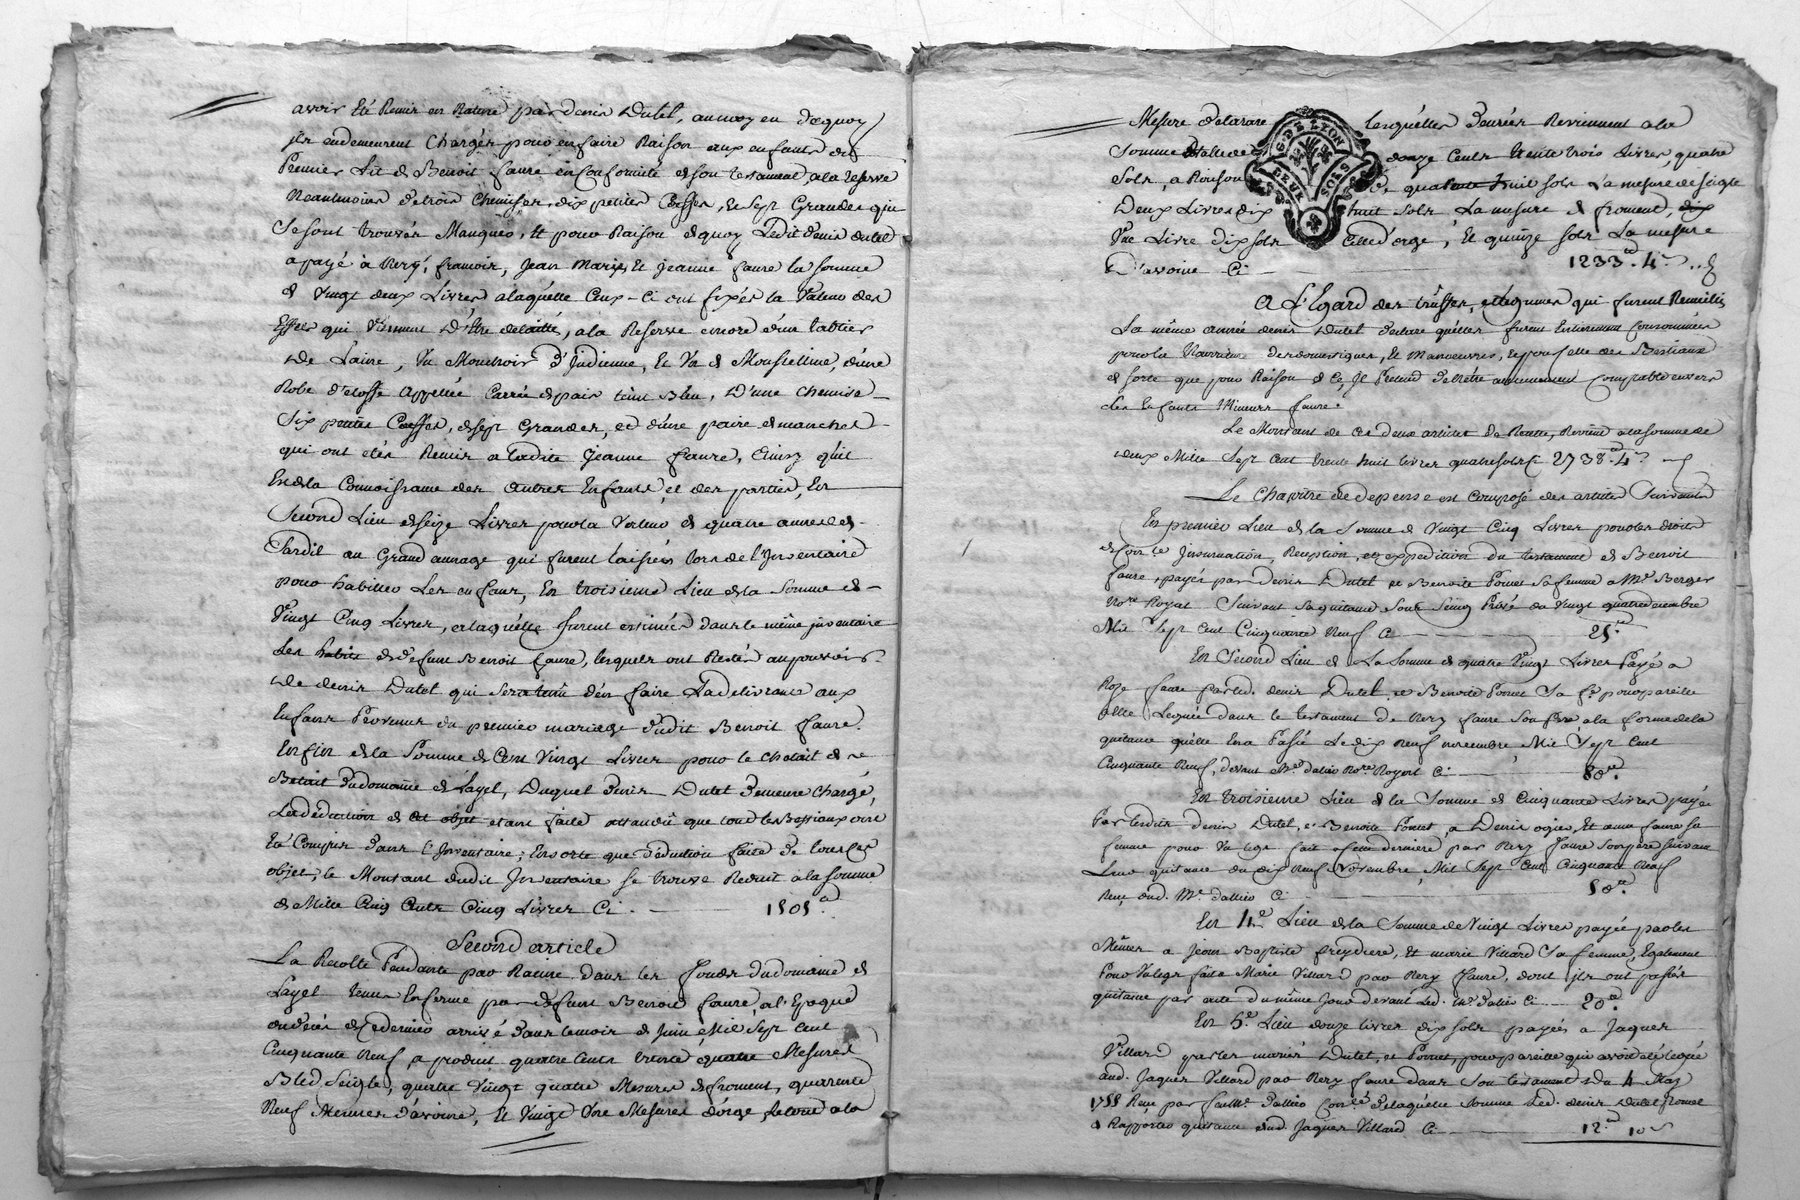 avoir été Remis en Nature par denis Dutel, aumoyen dequoy
jls endemeurent Chargés pour enfaire Raison aux enfants du
Premier Lit de Benoit faure enConformité deson testament, ala reserve
Neantmoins detrois Chemises, dix petites Coeffes, et sept Grandes qui
Se sont trouvés Manqués, et pour Raison dequoy Ledit denis dutel
a payé à Remy, francois, Jean Marie, et jeanne faure la somme
de vingt deux Livres alaquelle Ceux-Ci ont fixés la Valeur des
Effets qui viennent D'Etre detaillé, ala Reserve encore d'un tablier
De Laine, un Mouchoir D'Indienne, et un de Mousseline, d'une
Robe d'etoffe appellée Carrée depais teint Bleu, D'une Chemise
Six petites Coeffes, de sept Grandes, et d'une paire de manches
qui ont étés Remis a ladite jeanne faure, Einsy qu'il
Est de la Connoissance des autres Enfants, et des parties, En
Second Lieu de seize Livres pour la Valeur de quatre aunes de
Sardil au Grand aunage qui furent laissées lors de l'Inventaire
pour habiller Les enfans, En troisieme Lieu de la Somme de
Vingt Cinq Livres, alaquelle furent estimés dans le même jnventaire
Les habits de defunt Benoit faure, lesquels ont Restés au pouvoir
De denis Dutel qui sera tenu d'en faire La delivrance aux
Enfans Provenus du premier mariage dudit Benoit faure.
Enfin de la Somme de Cent Vingt Livres pour le Chatait de
Betait dudomaine de Layel, Duquel denis Dutel demeure Chargé,
La déduction de cet objet etant faite attandû que tous les Bestiaux ont
Eté Compris dans l'Inventaire; Ensorte que déduction faite de tous ces
objets, le Montant dudit Inventaire se trouve Reduit à la somme
de Mille Cinq Cents Cinq Livres Ci. 1505.
Second article
La Recolte Pendante par Racine dans les fonds dudomaine de
Layel tenu En ferme par defunt Benoit faure, a l'Epoque
du decés de Cedernier arrivé dans lemois de Juin Mil Sept Cent
Cinquante Neuf, a produit quatre Cents trente quatre Mesures
Bled Seigle, quatre Vingt quatre Mesures de froment, quarente
Neuf Mesures d'avoine, et Vingt Une Mesures d'orge, le tout a la
Mesure delarare lesquelles denrées Reviennent ala
Somme totalle de douze Cents trente trois Livres, quatre
Sols, a Raison quarante huit sols La mesure de seigle
Deux Livres dix huit sols La mesure de froment, dix
Une Livre dix sols Celle d'orge, Et quinze sols La mesure
D'avoine Ci 1233. 4
G. DE LYON
DEUX SOLS
A L'Egard des truffes, et legumes qui furent Recueillis
La même année denis Dutel declare qu'elles furent Entierement Consommées
pour la Nourriture des domestiques, Et Manoeuvres, et pour celle des Bestiaux
de sorte que pour Raison de Ce, Il Pretend de n'être aucunement Comptable envers
Les Enfants Mineurs faure.
Le Montant de Ces deux articles de Recette, Revient a la somme de
deux Mille Sept Cent trente huit livres quatre sols Ci 2738. 4
Le Chapitre de depense est Composé des articles Suivants
En premier Lieu de la Somme de Vingt Cinq Livres pour les droits
de Contrôle Insinuation, Reception, et expedition du testament de Benoit
faure, payés par Denis Dutel et Benoite Ponset Sa femme a Me. Berger
Nore. Royal Suivant Sa quitance Sous Seing Privé du Vingt quatre decembre
Mil Sept Cent Cinquante Neuf Ci 25.
En Second Lieu de La Somme de quatre Vingt Livres Payé a
Roze faure par led. denis Dutel, et Benoite Ponset Sa fe. pour pareille
Elle Leguée dans le testament de Remy faure Son Père a la forme de la
quitance qu'elle En a Passé Le dix Neuf novembre Mil Sept Cent
Cinquante Neuf, devant Me. dallieu Nore. Royal Ci 80.
En troisieme Lieu de la Somme de Cinquante Livres payée
Par lesdits denis Dutel, et Benoite Ponset, a Denis ogier, Et anne faure sa
femme pour Un legs fait a Cette derniere par Remy faure Son pere suivant
Leur quitance du dix Neuf Novembre, Mil Sept Cent Cinquante Neuf
Reçue dud. Me. dallieu Ci 50.
En 4e. Lieu de la Somme de Vingt Livres payée par les
Mêmes a Jean Baptiste freydiere, Et marie Villard Sa femme, Egalement
Pour Un legs fait a Marie Villard par Remy faure, dont jls ont passés
quitance par acte du même Jour devant Led. Me. dallieu Ci 20.
En 5e. Lieu douze livres dix sols payées a Jaques
Villard par les mariés Dutel, et Ponset, pour pareille qui avoit été leguée
aud. Jaques Villard par Remy faure dans Son testament du 4 May
1755 Reçu par feu Me. dallieu de laquelle Somme Led. denis Dutel
a Rapporté quitance dud. Jaques Villard Ci 12. 10